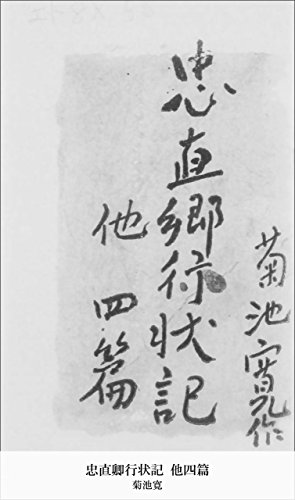 菊池寛作
忠直卿行状記
他四篇
忠直卿行状記 他四篇
菊池寛